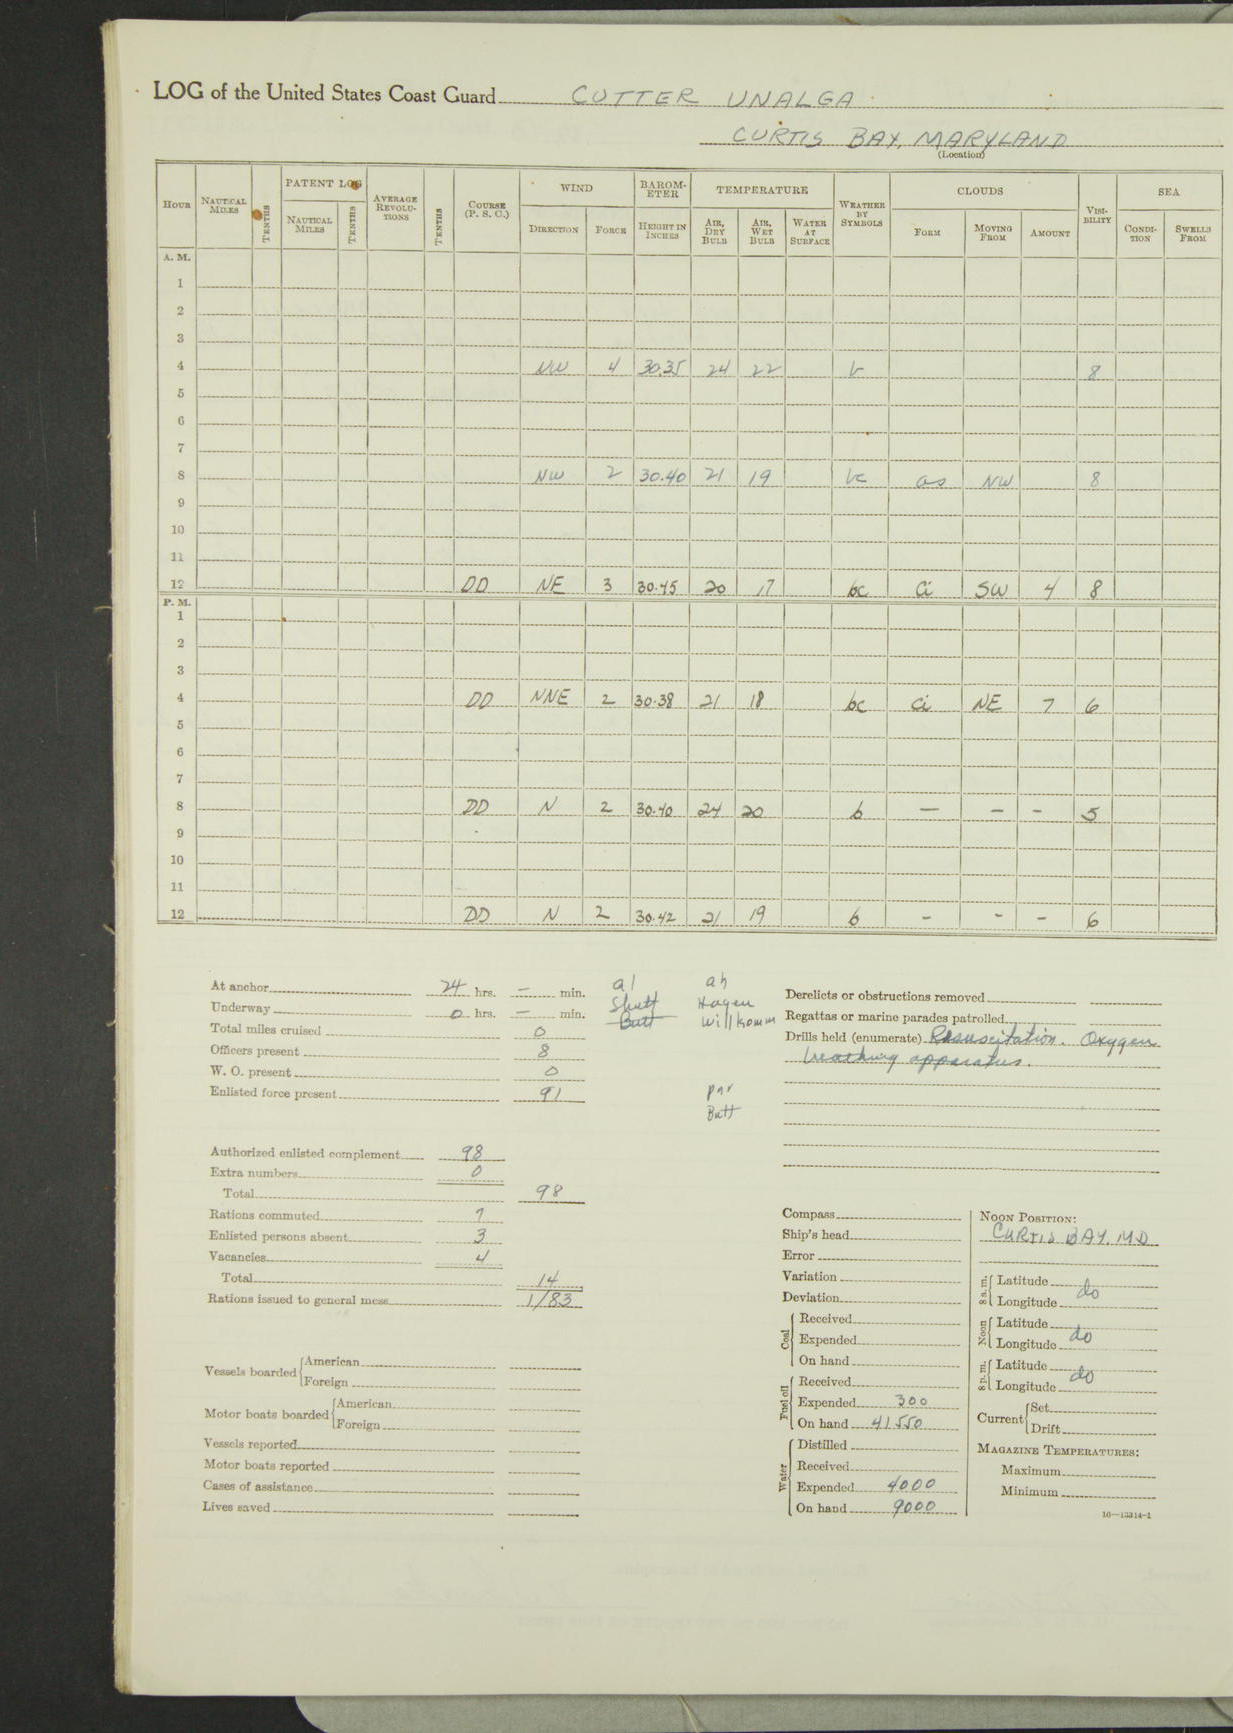 LOG of the United States Coast Guard CUTTER UNALGA
CURTIS BAY, MARYLAND
(Location)
HOUR NAUTICAL MILES TENTHS PATENT LOG NAUTICAL MILES TENTHS AVERAGE REVOLUTIONS TENTHS COURSE (P. S. C.) WIND DIRECTION FORCE BAROMETER HEIGHT IN INCHES TEMPERATURE AIR, DRY BULB AIR, WET BULB WATER AT SURFACE WEATHER BY SYMBOLS CLOUDS FORM MOVING FROM AMOUNT VISIBILITY SEA CONDITION SWELLS FROM
A. M.
1
2
3
4 NW 4 30.35 24 22 b 8
5
6
7
8 NW 2 30.40 21 19 bc as NW 8
9
10
11
12 DD NE 3 30.45 20 17 bc Ci SW 4 8
P. M.
1
2
3
4 DD NNE 2 30.38 21 18 bc Ci NE 7 6
5
6
7
8 DD N 2 30.40 24 20 b — — - 5
9
10
11
12 DD N 2 30.42 21 19 b - - - 6
At anchor 24 hrs. — min.
Underway 0 hrs. — min.
Total miles cruised 0
Officers present 8
W. O. present 0
Enlisted force present 91
al
Shutt
Butt
ah
Hagen
Willkomm
par
Butt
Authorized enlisted complement 98
Extra numbers 0
Total 98
Rations commuted 7
Enlisted persons absent 3
Vacancies 4
Total 14
Rations issued to general mess 1/83
Vessels boarded American
Foreign
Motor boats boarded American
Foreign
Vessels reported
Motor boats reported
Cases of assistance
Lives saved
Derelicts or obstructions removed
Regattas or marine parades patrolled
Drills held (enumerate) Resuscitation. Oxygen
breathing apparatus.
Compass
Ship's head
Error
Variation
Deviation
Coal Received
Expended
On hand
Fuel oil Received
Expended 300
On hand 41550
Water Distilled
Received
Expended 4000
On hand 9000
NOON POSITION:
CURTIS BAY. MD
8 a. m. Latitude
Longitude do
Noon Latitude
Longitude do
8 p. m. Latitude
Longitude do
Current Set
Drift
MAGAZINE TEMPERATURES:
Maximum
Minimum
16—13314-1